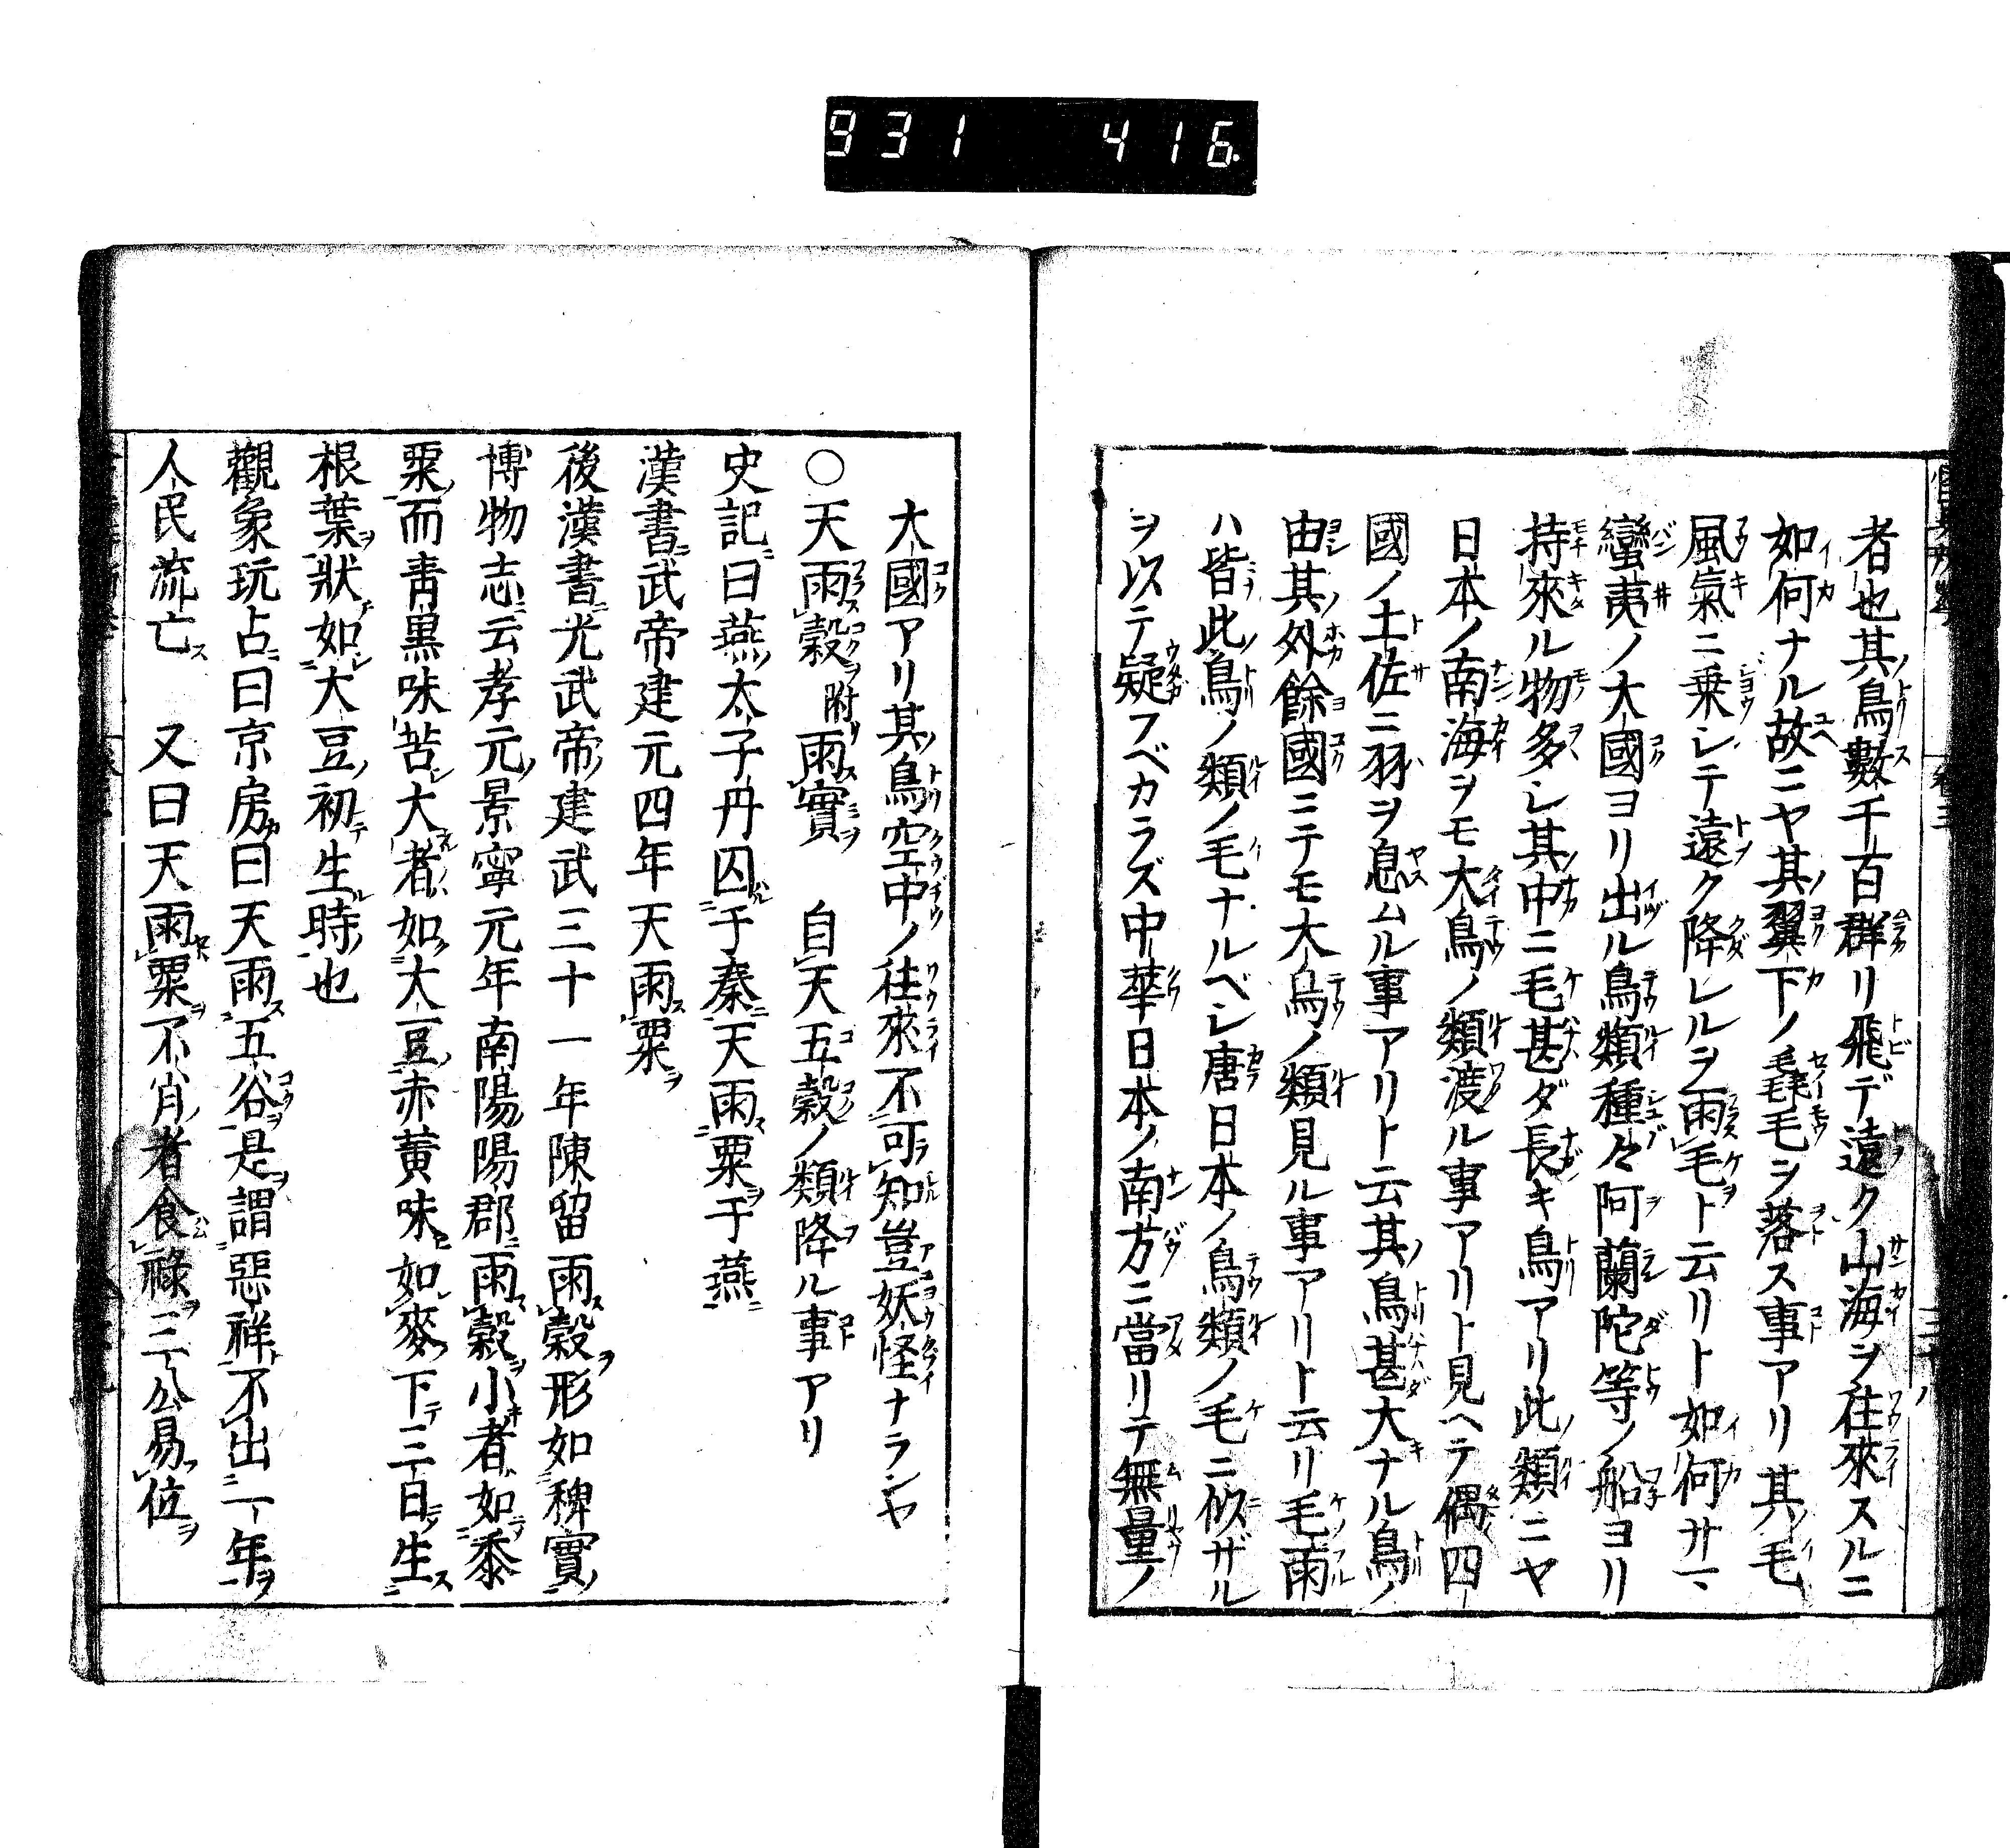 931 416
者也其鳥數千百群リ飛デ遠ク山海ヲ往來スルニ
如何ナル故ニヤ其翼下ノ毳毛ヲ落ス事アリ其毛
風氣ニ乗シテ遠ク降レルヲ雨毛ト云リト如何サマ
蠻夷ノ大國ヨリ出ル鳥類種々阿蘭陀等ノ船ヨリ
持來ル物多シ其中ニ毛甚ダ長キ鳥アリ此類ニヤ
日本ノ南海ヲモ大鳥ノ類渡ル事アリト見ヘテ偶四
國ノ土佐ニ羽ヲ息ムル事アリト云其鳥甚大ナル鳥ノ
由其外餘國ニテモ大鳥ノ類見ル事アリト云リ毛雨
ハ皆此鳥ノ類ノ毛ナルベシ唐日本ノ鳥類ノ毛ニ似ザル
ヲ以テ疑フベカラズ中華日本ノ南方ニ當リテ無量ノ
大國アリ其鳥空中ノ往來不可知豈妖怪ナランヤ
○天雨穀附雨實 自天五穀ノ類降ル事アリ
史記曰燕太子丹囚于秦天雨粟于燕
漢書武帝建元四年天雨粟
後漢書光武帝建武三十一年陳留雨穀形如稗實
博物志云孝元景寧元年南陽陽郡雨穀小者如黍
粟而青黒味苦大者如大豆赤黄味如麥下三日生
根葉狀如大豆初生時也
觀象玩占曰京房曰天雨五谷是謂惡祥不出一年
人民流亡 又曰天雨粟不肖者食祿三公易位